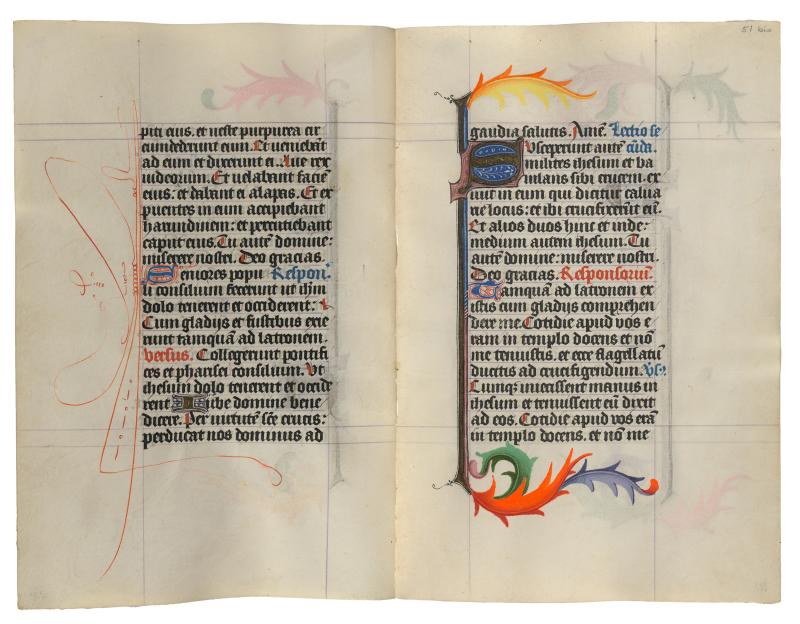 piti eius. et veste purpurea cir
cumdederunt eum. Et veniebāt
ad eum et dixerunt ei. Aue rex
iudeorum. Et velabant faciē
eius: et dabant ei alapas. Et ex
puentes in eum accipiebant
harundinem: et percutiebant
caput eius. Tu autē domine:
miserere nostri. Deo gracias.
Seniores popu Respon.
li consilium fecerunt ut ihm̄
dolo tenerent et occiderent:
Cum gladijs et fustibus exie
runt tamquam ad latronem.
versus. Collegerunt pontifi
ces et pharisei consilium. Vt
ihesum dolo tenerent et occide
rent Iube domine bene
dicere. Per virtutē scē crucis:
perducat nos dominus ad
51 bis
gaudia salutis. Amē. Lectio se
Susceperunt autē cūda.
milites ihesum et ba
iulans sibi crucem. ex
iuit in eum qui dicitur calua
rie locus: et ibi crucifixerūt eū.
Et alios duos hinc et inde:
medium autem ihesum. Tu
autē domine: miserere nostri.
Deo gracias. Responsoriū.
Tamquā ad latronem ex
istis cum gladijs comprehen
dere me. Cotidie apud vos e
ram in templo docens et nō
me tenuistis. et ecce flagellatū
ducitis ad crucifigendum. vs.
Cumqꝫ iniecissent manus in
ihesum et tenuissent eū dixit
ad eos. Cotidie apud vos erā
in templo docens. et nō me